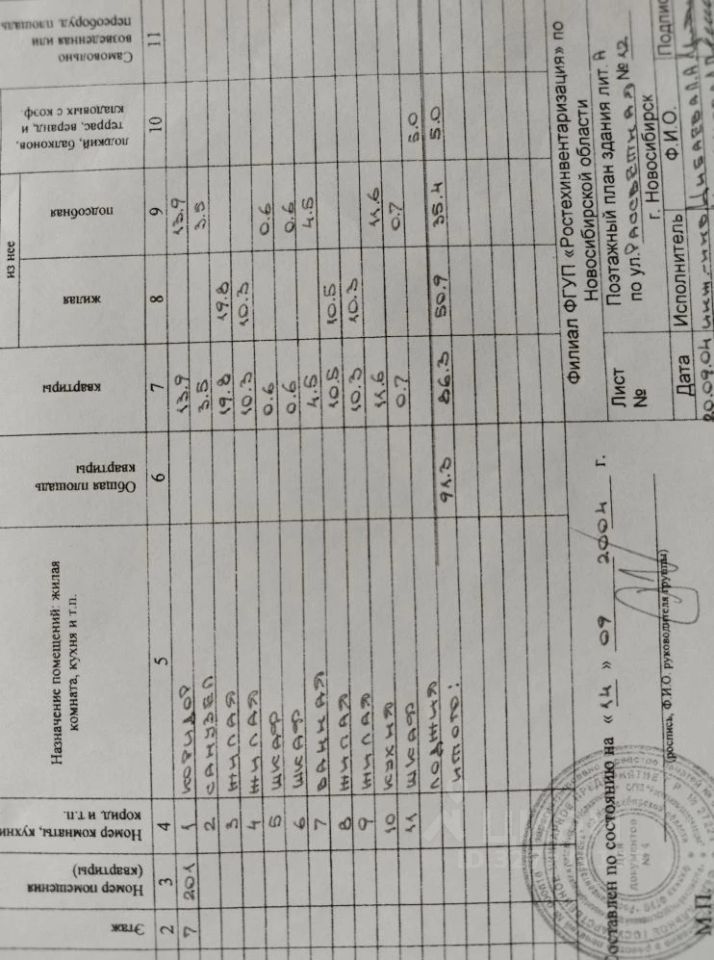 Этаж
Номер помещения (квартиры)
Номер комнаты, кухни корид. и т.п.
Назначение помещений: жилая комната, кухня и т.п.
Общая площадь квартиры
квартиры
из нее
жилая
подсобная
лоджий, балконов, террас, веранд, и кладовых с коэф.
Самовольно возведенная или переоборуд. площадь
2 3 4 5 6 7 8 9 10 11
7 201 1 коридор 13.9 13.9
2 санузел 3.5 3.5
3 жилая 19.8 19.8
4 жилая 10.3 10.3
5 шкаф 0.6 0.6
6 шкаф 0.6 0.6
7 ванная 4.5 4.5
8 жилая 10.5 10.5
9 жилая 10.3 10.3
10 кухня 11.6 11.6
11 шкаф 0.7 0.7
лоджия 5.0
итого: 91.3 86.3 50.9 35.4 5.0
Составлен по состоянию на «14» 09 2004 г.
(роспись, Ф.И.О. руководителя группы)
М.П.
Для документов № 4
Филиал ФГУП «Ростехинвентаризация» по
Новосибирской области
Лист №
Поэтажный план здания лит. А
по ул. Рассветная № 12
г. Новосибирск
Дата Исполнитель Ф.И.О. Подпис
20.09.04